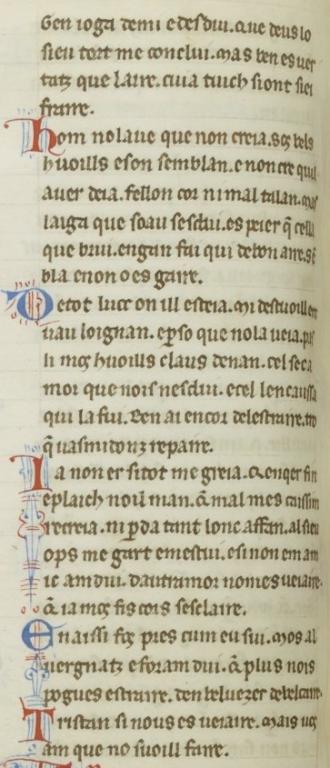 Gen ioga de mi e desdui. que deus lo
sieu tort me conclui. mas ben es uer
tatz que laire. cuia tuich siont siei
fraire.
Hom no laue que non creia. sos bels
huoills e son semblan. e non cre qui
auer deia. fellon cor ni mal talan. mas
laiga que soau sesdui. es peier q̃ cella
que brui. engan fai qui de bon aire. se
bla e non o es gaire.
De tot luec on ill esteia. mi destuoill e
uau loignan. e ꝑ so que no la ueia. pas
li mos huoills claus denan. cel sec a
mor que nois nesdui. e cel lencaussa
qui la fui. Ben ai en cor del estraire. tro
q̃ uas midonz repaire.
Ia non er si tot me greia. qenqer fin
e plaich noil man. q̃ mal mes caissim
recreia. ni ꝑda tant lonc affan. al sieu
ops me gart em estui. e si non em am
ic amdui. dautramor no mes ueiaire.
q̃ ia mos fis cors sesclaire.
Enaissi fos pres cum eu sui. mos al
uergnatz e foram dui. q̃ plus nois
pogues estraire. den beluezer de belcaire.
Tristan si nous es ueiaire. mais uos
am que no suoill faire.